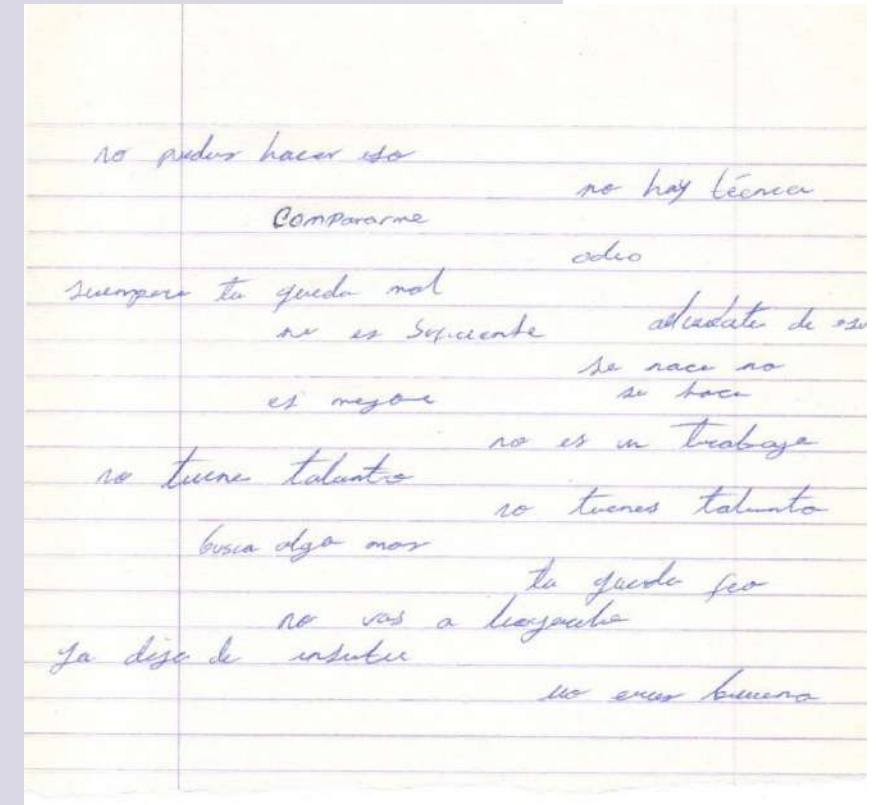 no puedes hacer eso
no hay técnica
Compararme
odio
siempre te queda mal
no es suficiente
de eso
se nace no
se hace
es mejor
no es un trabajo
no tiene talento
no tienes talento
busca algo mas
te queda feo
no vas a
ya deja de
no eres buena